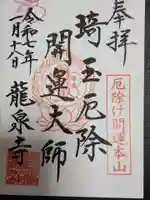 奉拝
厄除け開運本山
埼玉厄除
開運大師
令和七年
龍泉寺